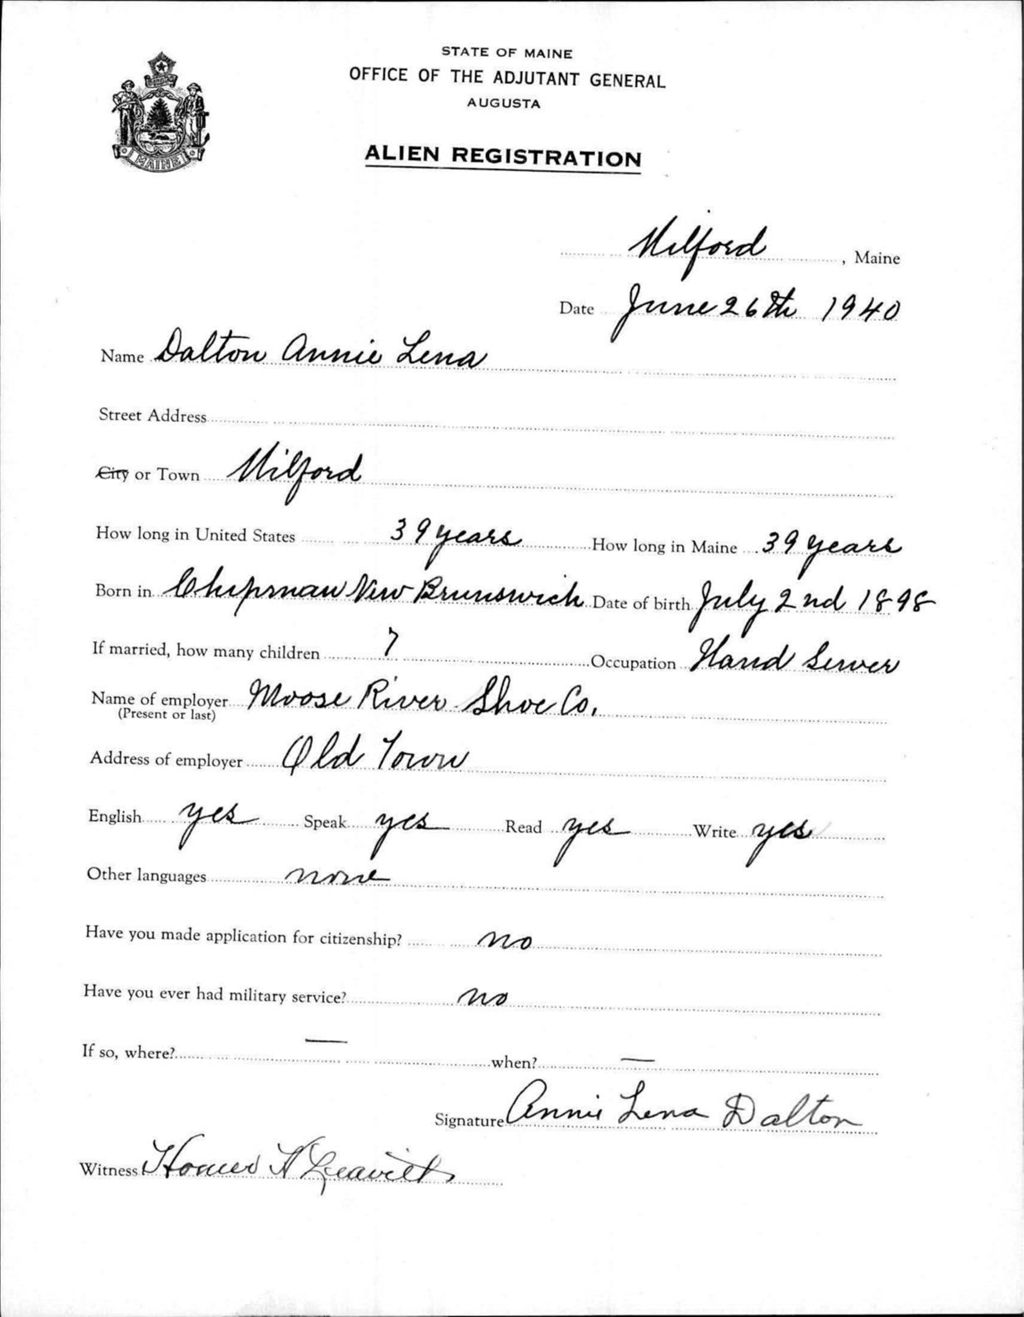 STATE OF MAINE
OFFICE OF THE ADJUTANT GENERAL
AUGUSTA
ALIEN REGISTRATION
MAINE
Milford, Maine
Date June 26th 1940
Name Dalton Annie Lena
Street Address
City or Town Milford
How long in United States 39 years How long in Maine 39 years
Born in Chipman New Brunswick Date of birth July 2nd 1898
If married, how many children 7 Occupation Hand Sewer
Name of employer Moose River Shoe Co.
(Present or last)
Address of employer Old Town
English yes Speak yes Read yes Write yes
Other languages none
Have you made application for citizenship? no
Have you ever had military service? no
If so, where? — when? —
Signature Annie Lena Dalton
Witness Homer A Leavitt